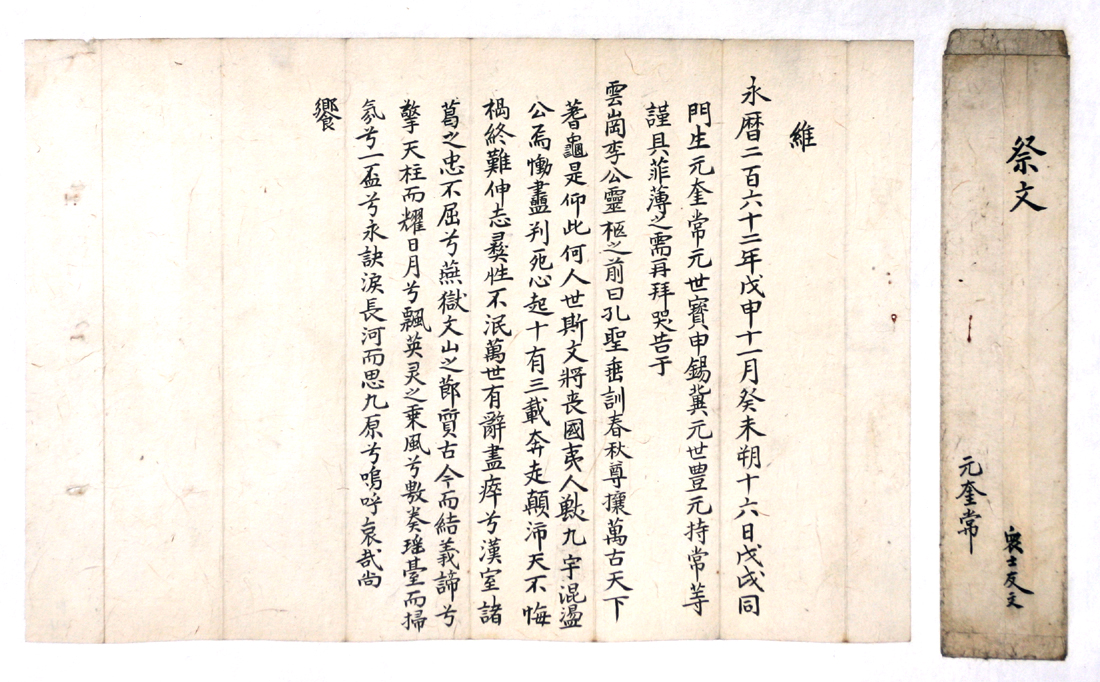 祭文
衆士友文
元奎常
維
永曆二百六十二年戊申十一月癸未朔十六日戊戌同
門生元奎常元世寶申錫冀元世豊元持常等
謹具菲薄之需再拜哭告于
雲崗李公靈柩之前曰孔聖垂訓春秋尊攘萬古天下
蓍龜是仰此何人世斯文將丧國夷人獸九宇混盪
公焉慟盡判死心起十有三載奔走顛沛天不悔
禍終難伸志彛性不泯萬世有辭盡瘁兮漢室諸
葛之忠不屈兮燕獄文山之節質古今而結義諦兮
擎天柱而耀日月兮飄英灵之乘風兮敷奏瑤臺而掃
氛兮一盃兮永訣淚長河而思九原兮嗚呼哀哉尚
饗